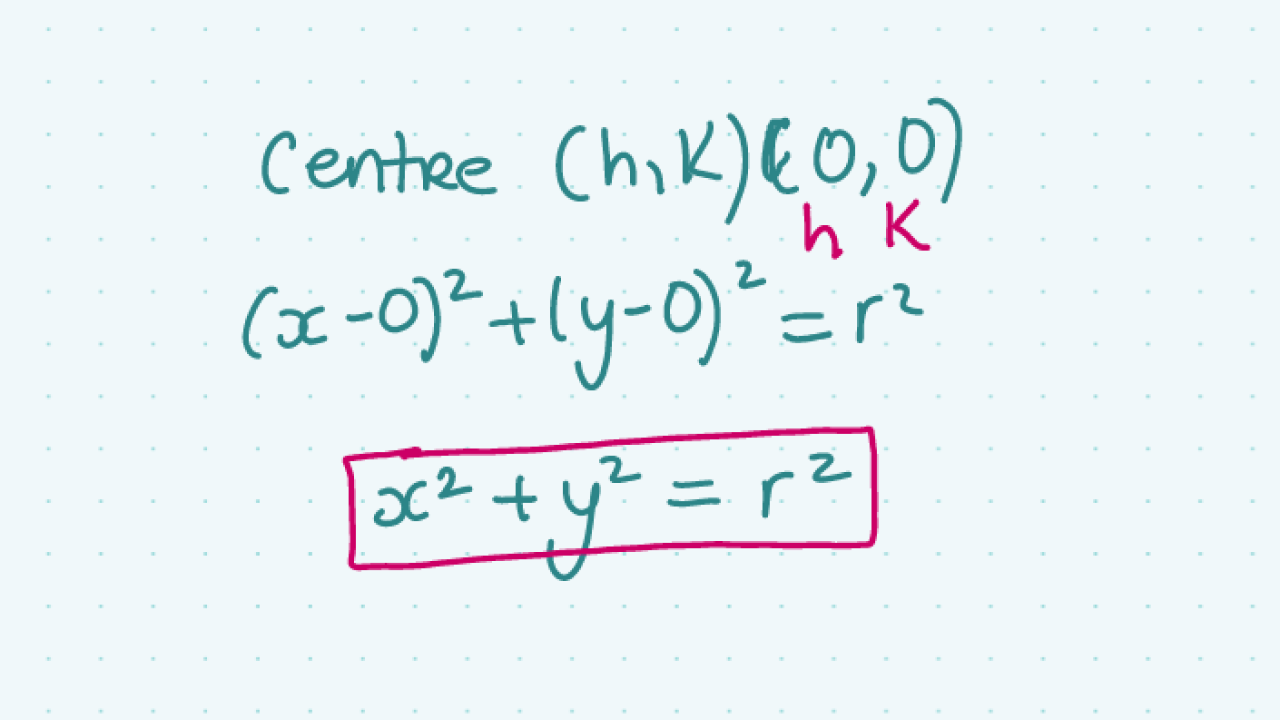 Centre (h, K) (0, 0)
h K
(x - 0)² + (y - 0)² = r²
x² + y² = r²